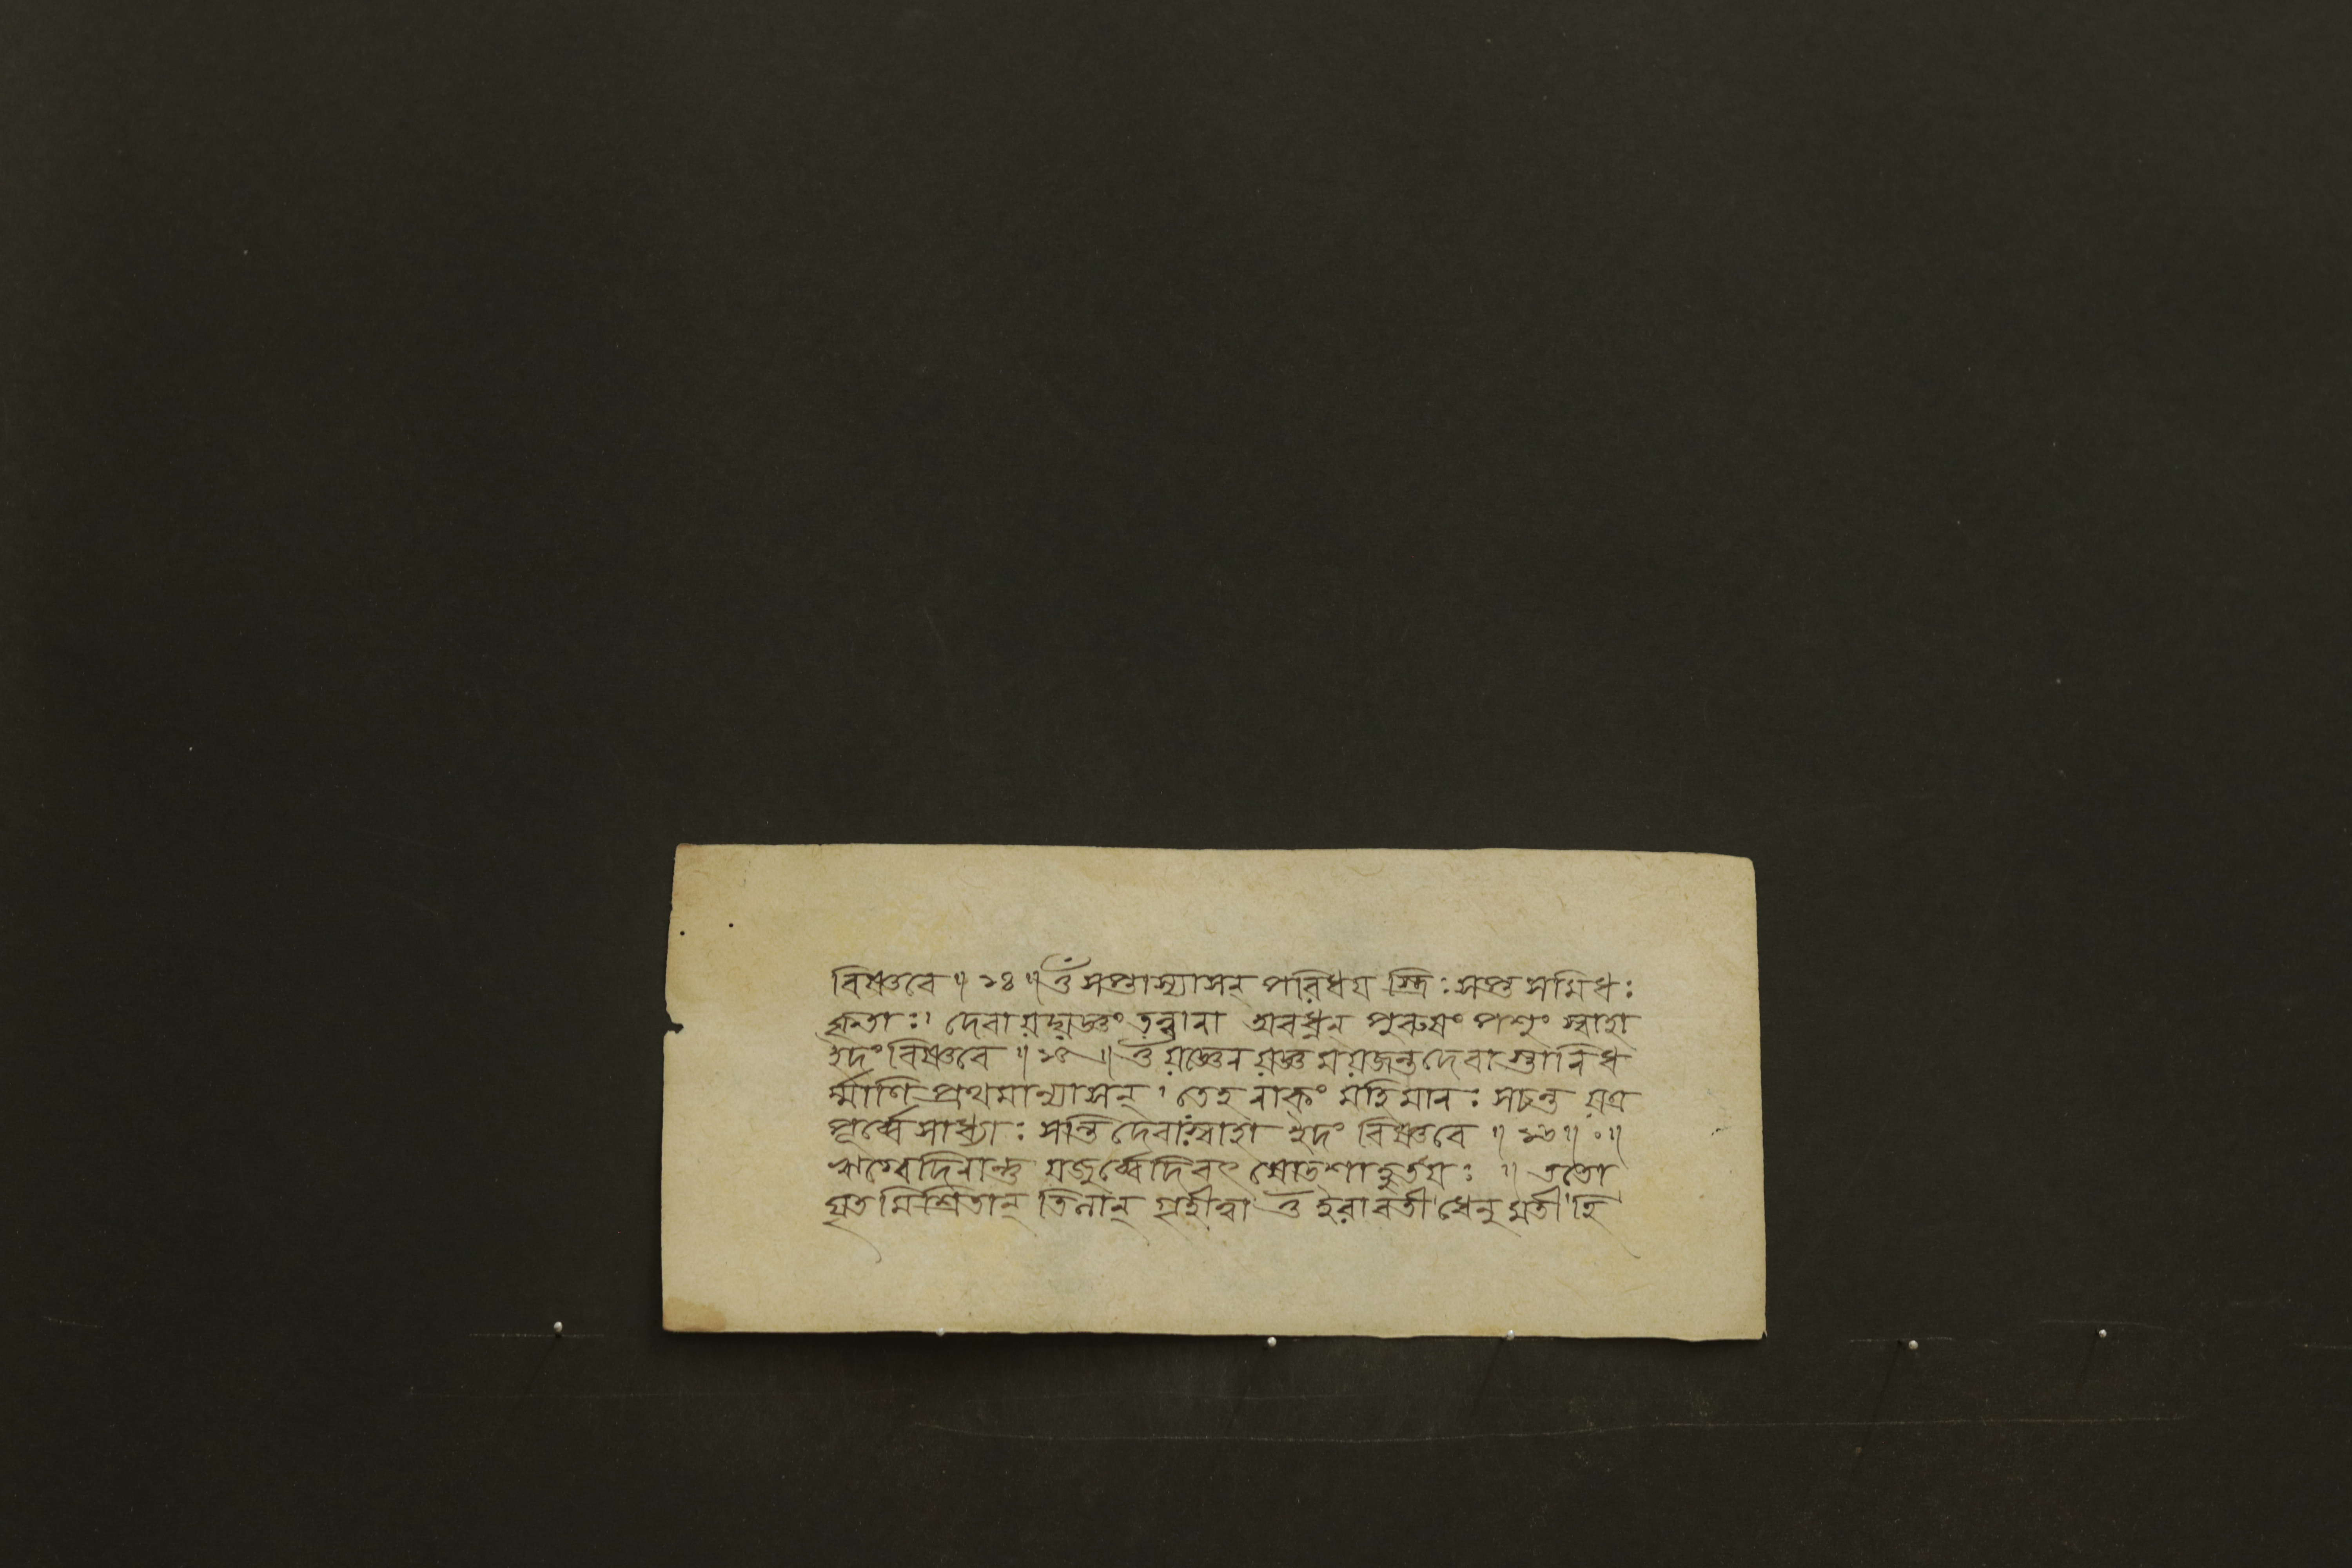 বিষ্ণবে ॥ ১৪ ॥ ওঁ সপ্তাস্যাসন্ পরিধয় স্ত্রিঃ সপ্ত সমিধঃ
কৃতাঃ। দেবা যদ্যজ্ঞং তন্বানা অবধ্নন্ পুরুষং পশুং স্বাহা
ইদং বিষ্ণবে ॥ ১৫ ॥ ওঁ যজ্ঞেন যজ্ঞ ময়জন্ত দেবা স্তানি ধ
র্ম্মাণি প্রথমান্যাসন্। তেহ নাকং মহিমানঃ সচন্ত যত্র
পূর্ব্বে সাধ্যাঃ সন্তি দেবাঃ স্বাহা ইদং বিষ্ণবে ॥ ১৬ ॥ ০ ॥
ঋগ্বেদিনান্তু যজুর্ব্বেদিবৎ ষোডশাহুতয়ঃ ॥ ততো
ঘৃত মিশ্রিতান্ তিলান্ গৃহীত্বা ওঁ ইরাবতী ধেনুমতী হি